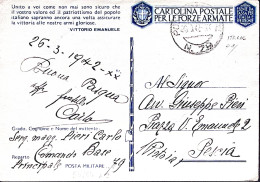 Unito a voi come non mai sono sicuro che
il vostro valore ed il patriottismo del popolo
italiano sapranno ancora una volta assicurare
la vittoria alle nostre armi gloriose.
VITTORIO EMANUELE
CARTOLINA POSTALE
PER LE FORZE ARMATE
26-3-1942-XX
Buona Pasqua
Carlo
Al Signor
Avv. Giuseppe
Piazza V. Emanuele 2
Pavia
Grado, Cognome e Nome del mittente
Serg. magg. Pieri Carlo
Reparto Comando Base
Principale POSTA MILITARE